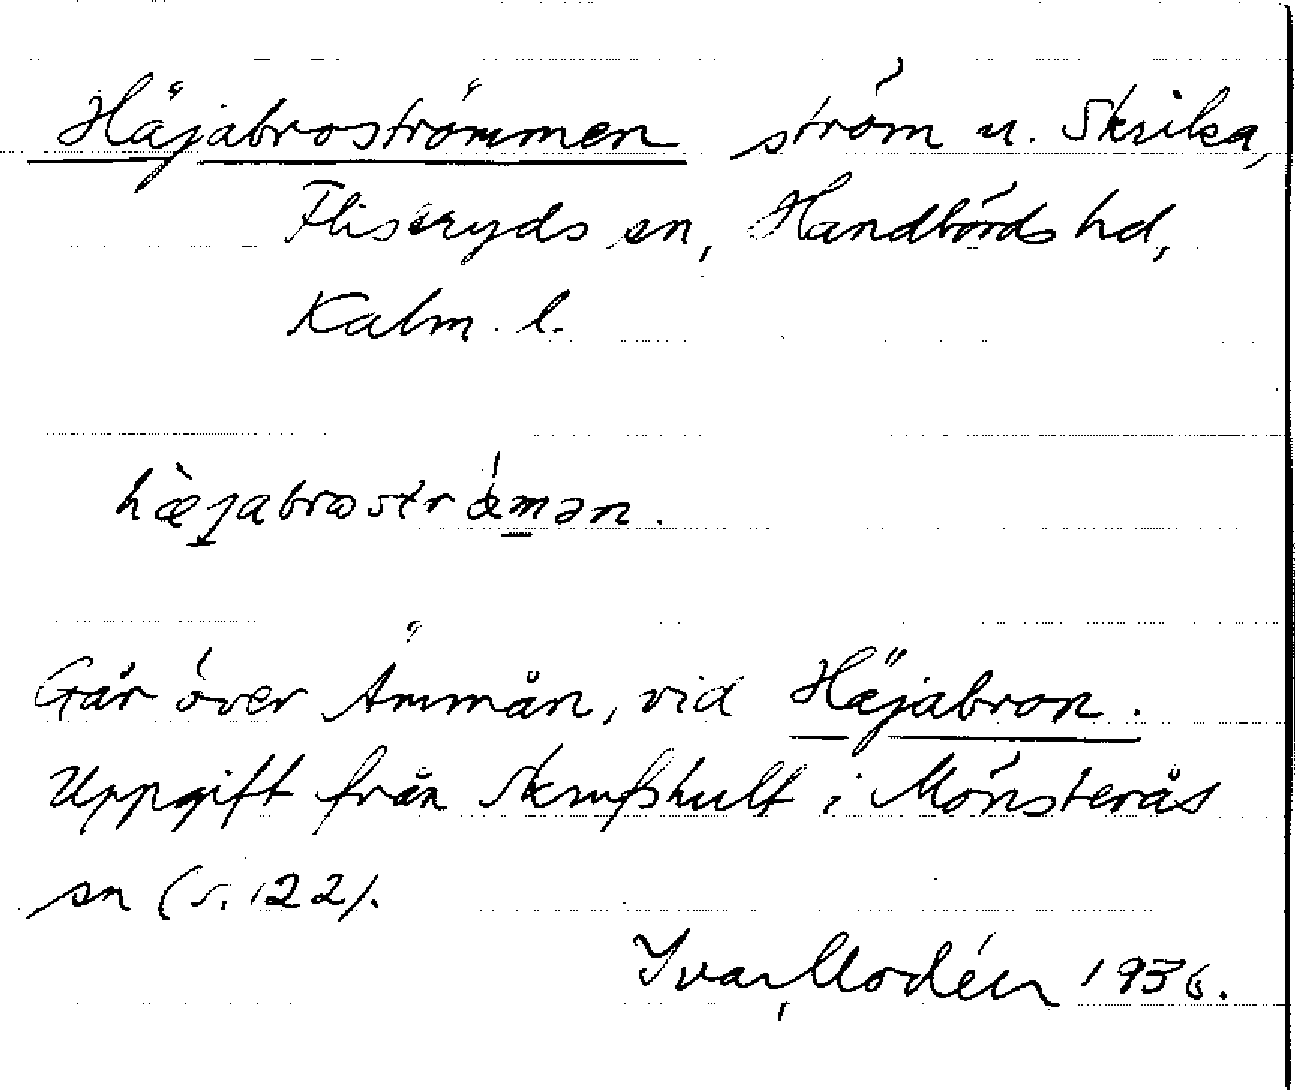 Häjabroströmmen ström u. Skrika,
Fliseryds sn, Handbörds hd,
Kalm. l.
hæjabrostrǿmən.
Går över Ämmån, vid Häjabron.
Uppgift från Skrufshult i Mönsterås
sn (s. 122).
Ivar Modéer 1936.